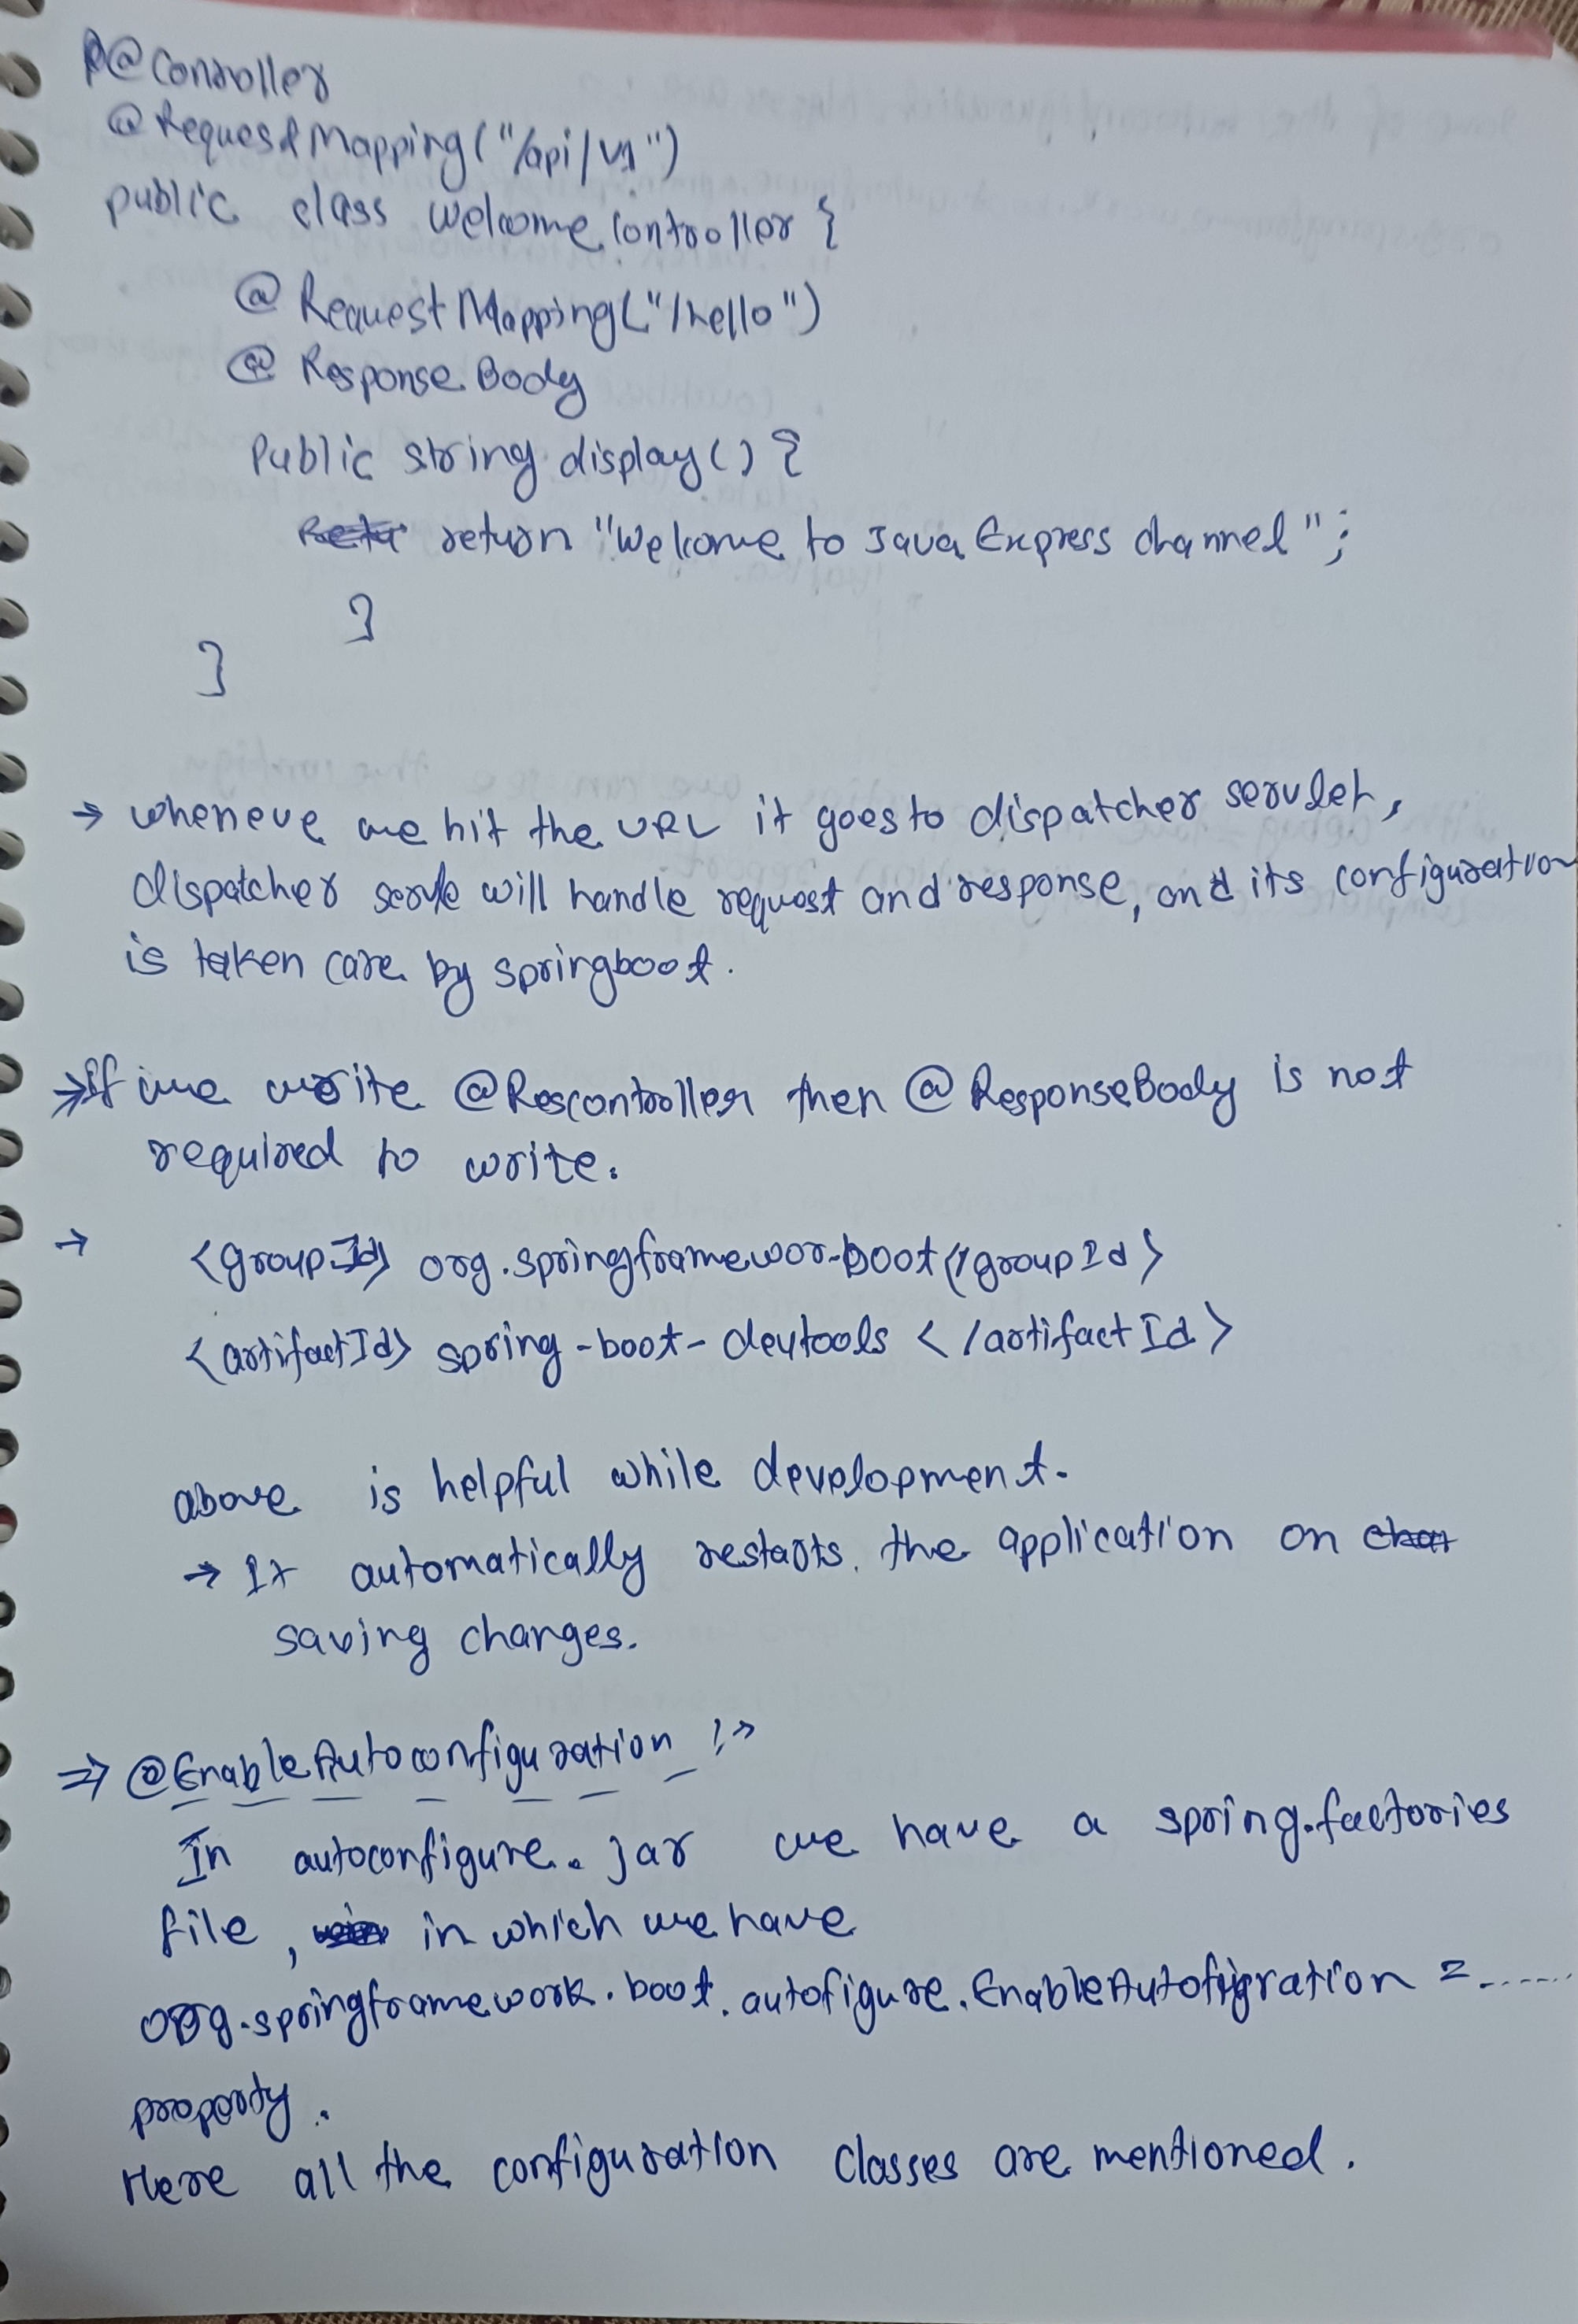 @Controller
@RequestMapping("/api/v1")
public class WelcomeController {
@RequestMapping("/hello")
@ResponseBody
Public string display() {
return "Welcome to Java Express channel";
}
}
→ wheneve we hit the URL it goes to dispatcher servlet,
dispatcher servle will handle request and response, and its configuration
is taken care by springboot.
→ If we write @Rescontroller then @ResponseBody is not
required to write.
→ <groupId> org.springframewor-boot</groupId>
<artifactId> spring-boot-devtools </artifactId>
above is helpful while development.
→ It automatically restarts the application on
saving changes.
⇒ @EnableAutoconfiguration :→
In autoconfigure.jar we have a spring.factories
file, in which we have
org.springframework.boot.autofigure.EnableAutofigration = ......
property.
Here all the configuration classes are mentioned.